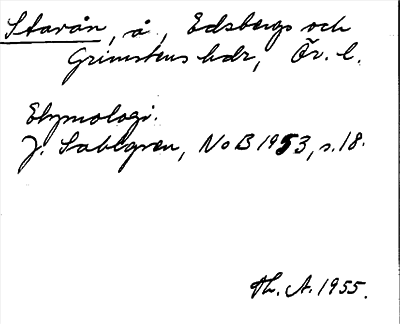 Starån, å, Edsbergs och
Grimstens hdr, Ör. l.
Etymologi.
J. Sahlgren, NoB 1953, s. 18.
Th. A. 1955.